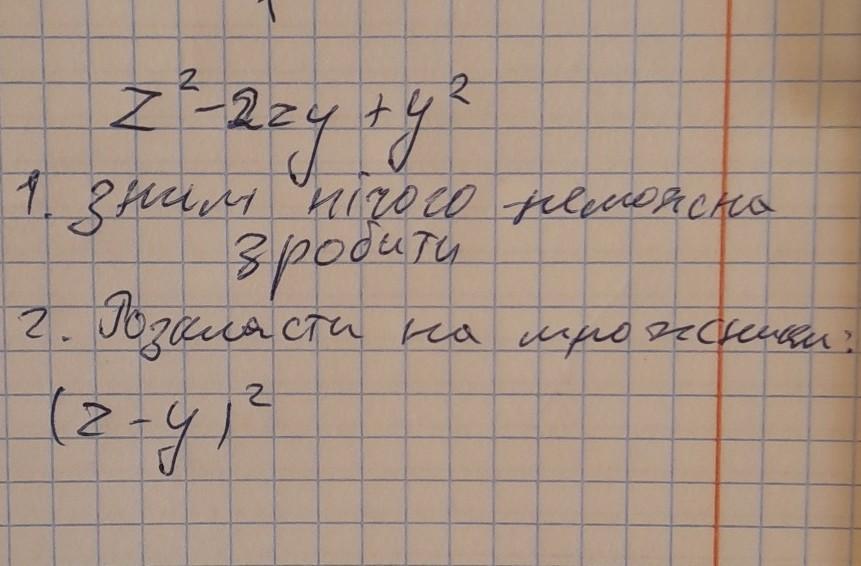 z² - 2zy + y²
1. з ним нічого неможна
зробити
2. Розкласти на множники:
(z - y)²